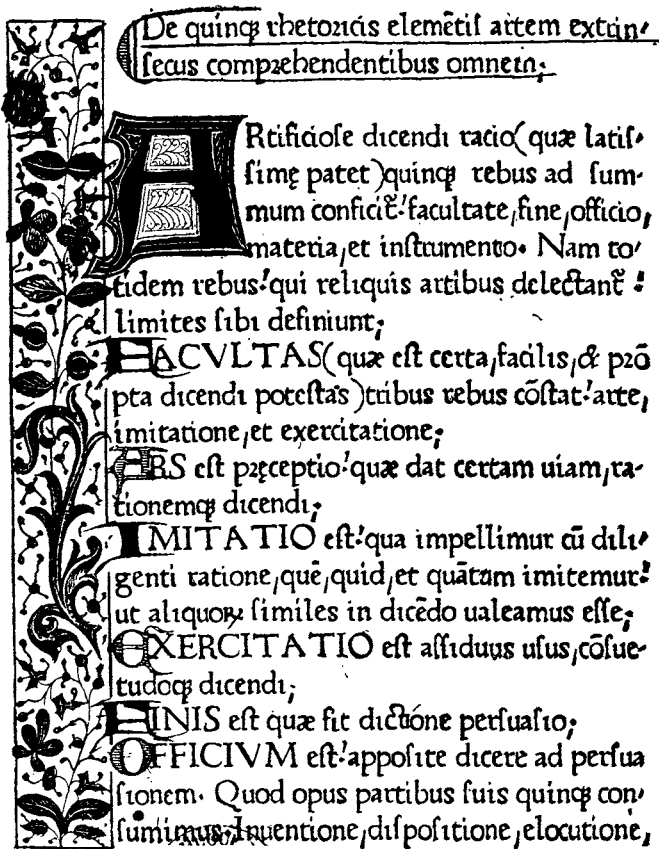 De quinqꝫ rhetoricis elemētiſ artem extrin⸗
ſecus comprehendentibus omnem;
ARtificioſe dicendi racio(quæ latiſ⸗
ſimę patet)quinqꝫ rebus ad ſum⸗
mum conficit̃:facultate,fine,officio,
materia,et inſtrumento. Nam to⸗
tidem rebus:qui reliquis artibus delectant̃:
limites ſibi definiunt;
FACVLTAS(quæ eſt certa,facilis,& prō
pta dicendi poteſtas)tribus rebus cōſtat:arte,
imitatione,et exercitatione;
ARS eſt pręceptio:quæ dat certam uiam,ra⸗
tionemqꝫ dicendi;
IMITATIO eſt:qua impellimur cū dili⸗
genti ratione,quē,quid,et quātum imitemur:
ut aliquoꝝ ſimiles in dicēdo ualeamus eſſe;
EXERCITATIO eſt aſſiduus uſus,cōſue⸗
tudoqꝫ dicendi;
FINIS eſt quæ fit dictione perſuaſio;
OFFICIVM eſt:appoſite dicere ad perſua
ſionem. Quod opus partibus ſuis quinqꝫ con⸗
ſumimus.Inuentione,diſpoſitione,elocutione,